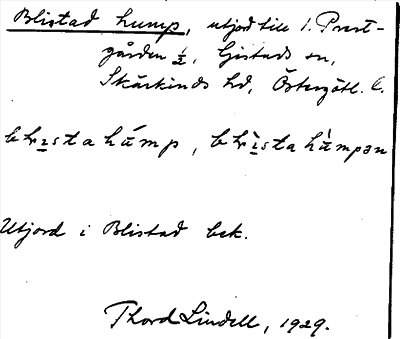 Blistad hump, utjord till 1. Prest-
gården ½, Gistads sn,
Skärkinds hd, Östergötl. l.
hump,
Utjord i Blistad bek.
Thord Lindell, 1929.